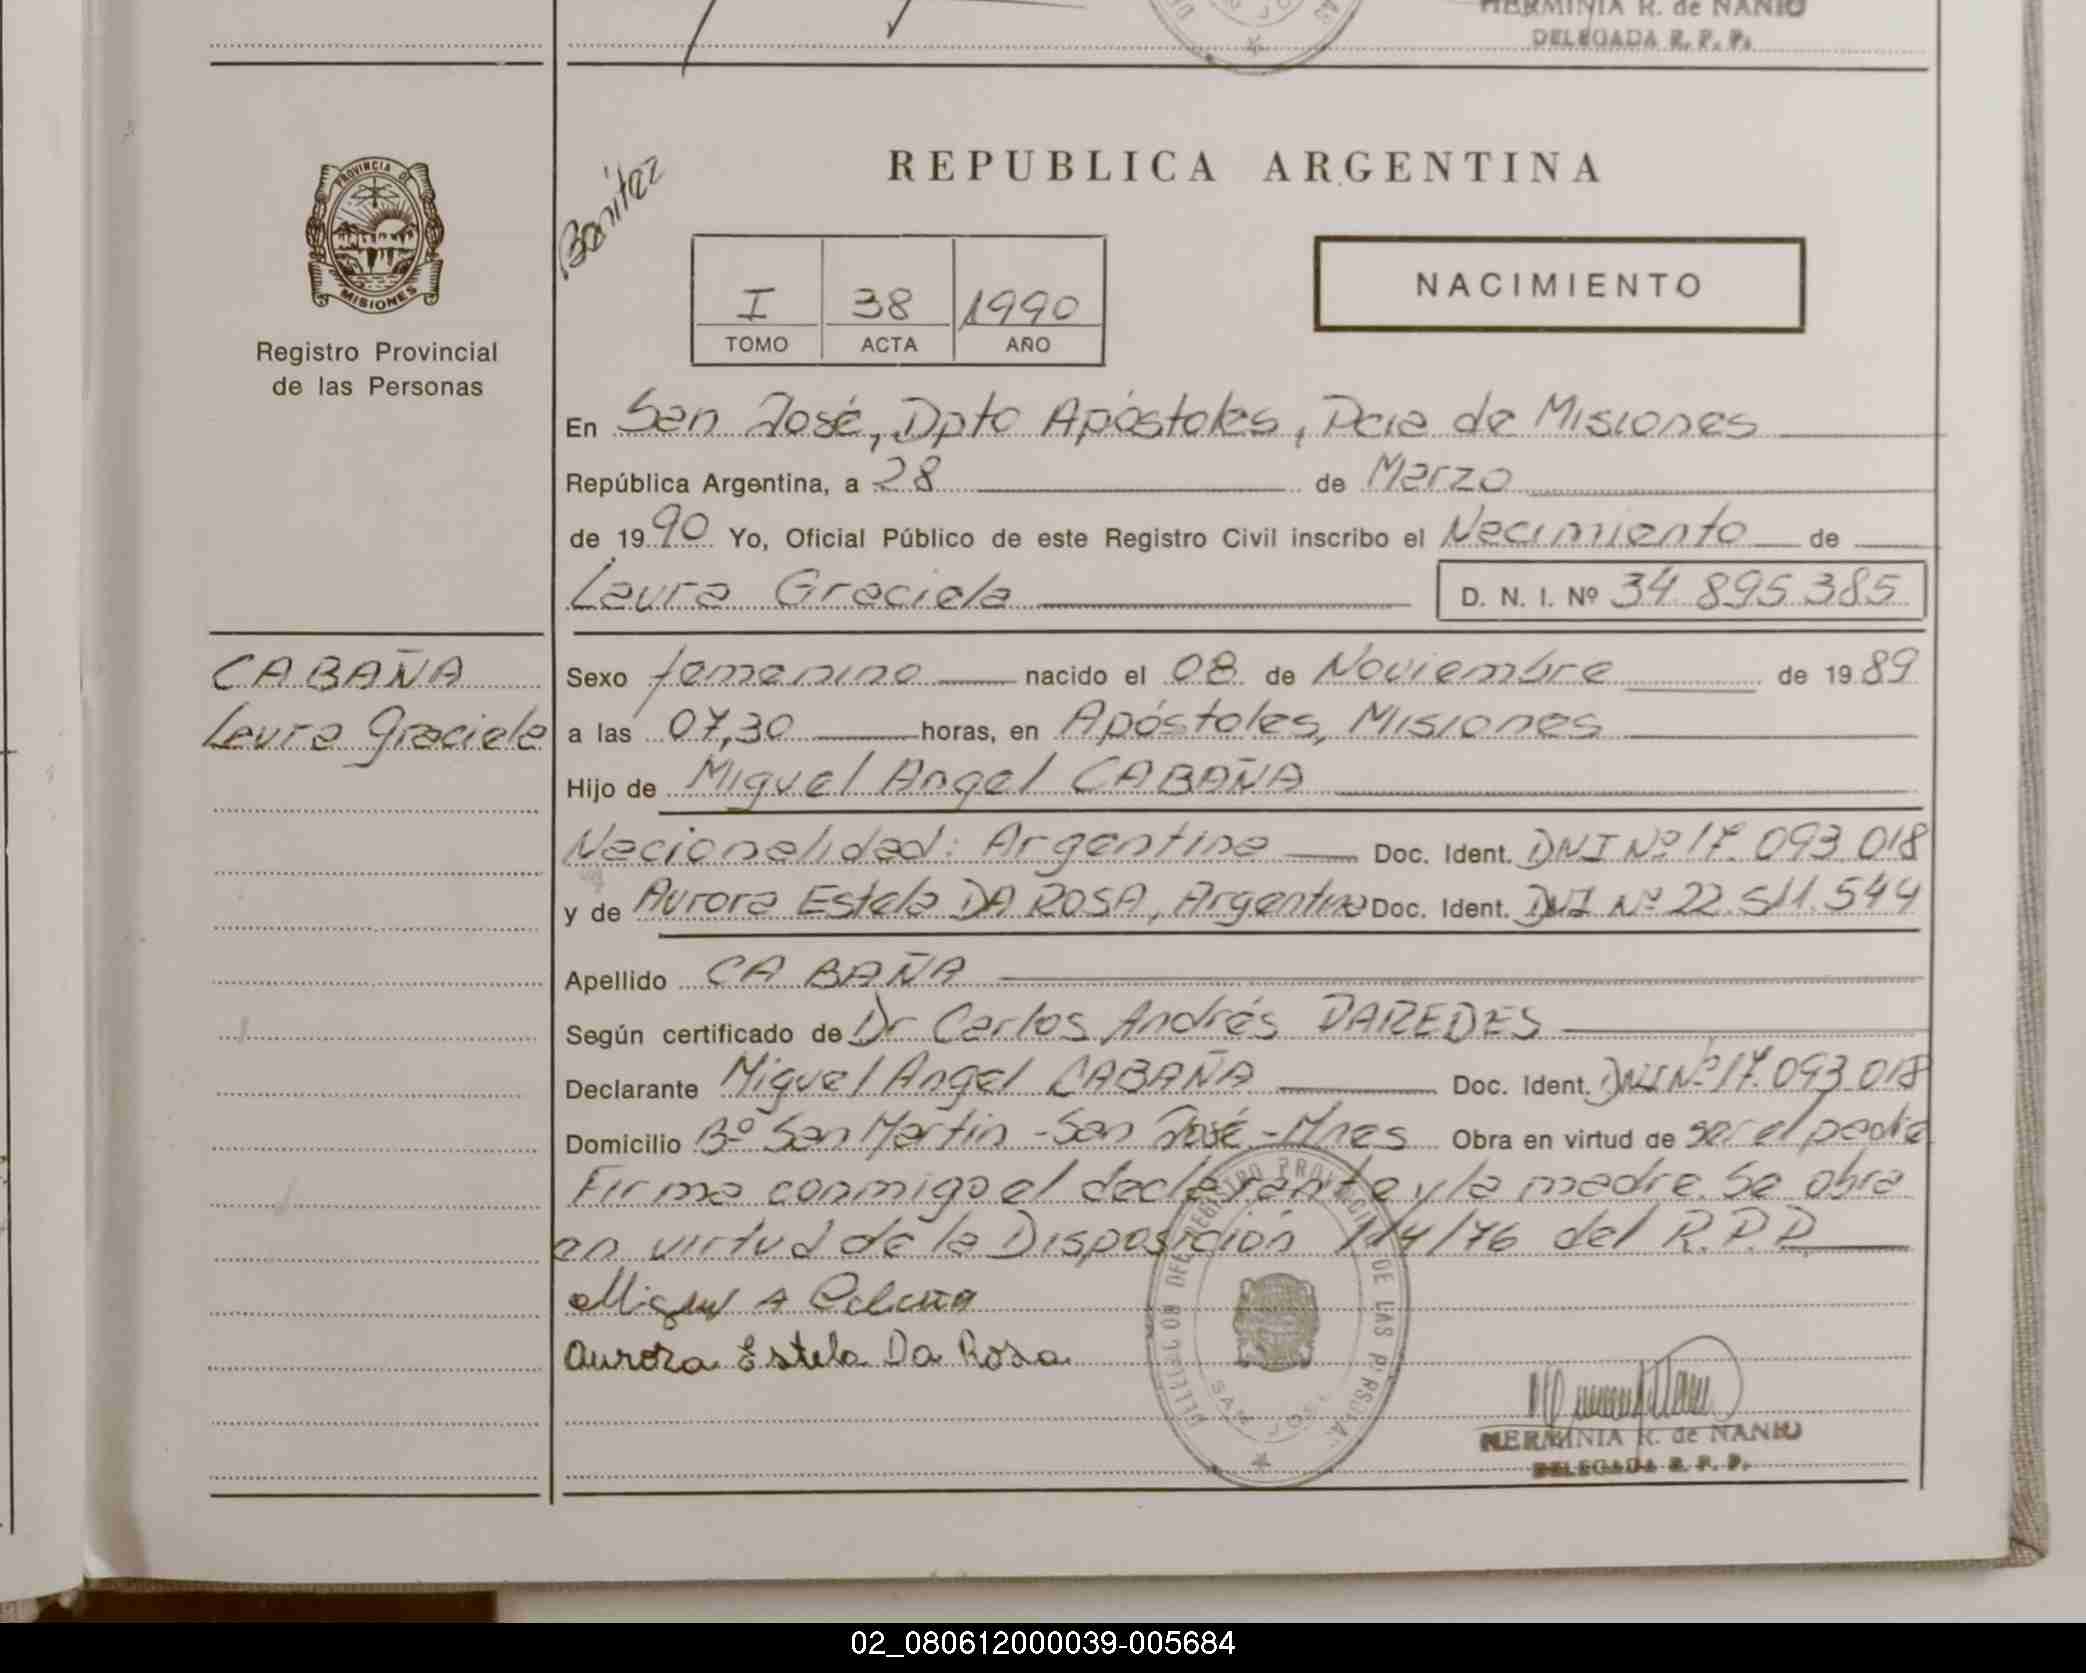 HERMINIA R. de NANIO
DELEGADA R. P. P.
PROVINCIA DE
MISIONES
Registro Provincial
de las Personas
Benitez
REPUBLICA ARGENTINA
I 38 1990
TOMO ACTA AÑO
NACIMIENTO
En San José, Dpto Apóstoles, Pcia de Misiones
República Argentina, a 28 de Marzo
de 1990 Yo, Oficial Público de este Registro Civil inscribo el Nacimiento de
Laura Graciela D. N. I. Nº 34.895.385
CABAÑA
Laura Graciela
Sexo femenino nacido el 08 de Noviembre de 1989
a las 07,30 horas, en Apóstoles, Misiones
Hijo de Miguel Angel CABAÑA
Nacionalidad: Argentina Doc. Ident. DNI Nº 17.093.018
y de Aurora Estela DA ROSA, Argentina Doc. Ident. DNI Nº 22.511.544
Apellido CABAÑA
Según certificado de Dr Carlos Andrés PAREDES
Declarante Miguel Angel CABAÑA Doc. Ident. DNI Nº 17.093.018
Domicilio Bº San Martin - San José - Mnes Obra en virtud de ser el padre
Firma conmigo el declarante y la madre. Se obra
en virtud de la Disposición 114/76 del R.P.P.
Miguel A Cabaña
Aurora Estela Da Rosa
DEL REGISTRO PROVINCIAL DE LAS PERSONAS
SAN JOSE
HERMINIA R. de NANIO
DELEGADA R. P. P.
02_080612000039-005684